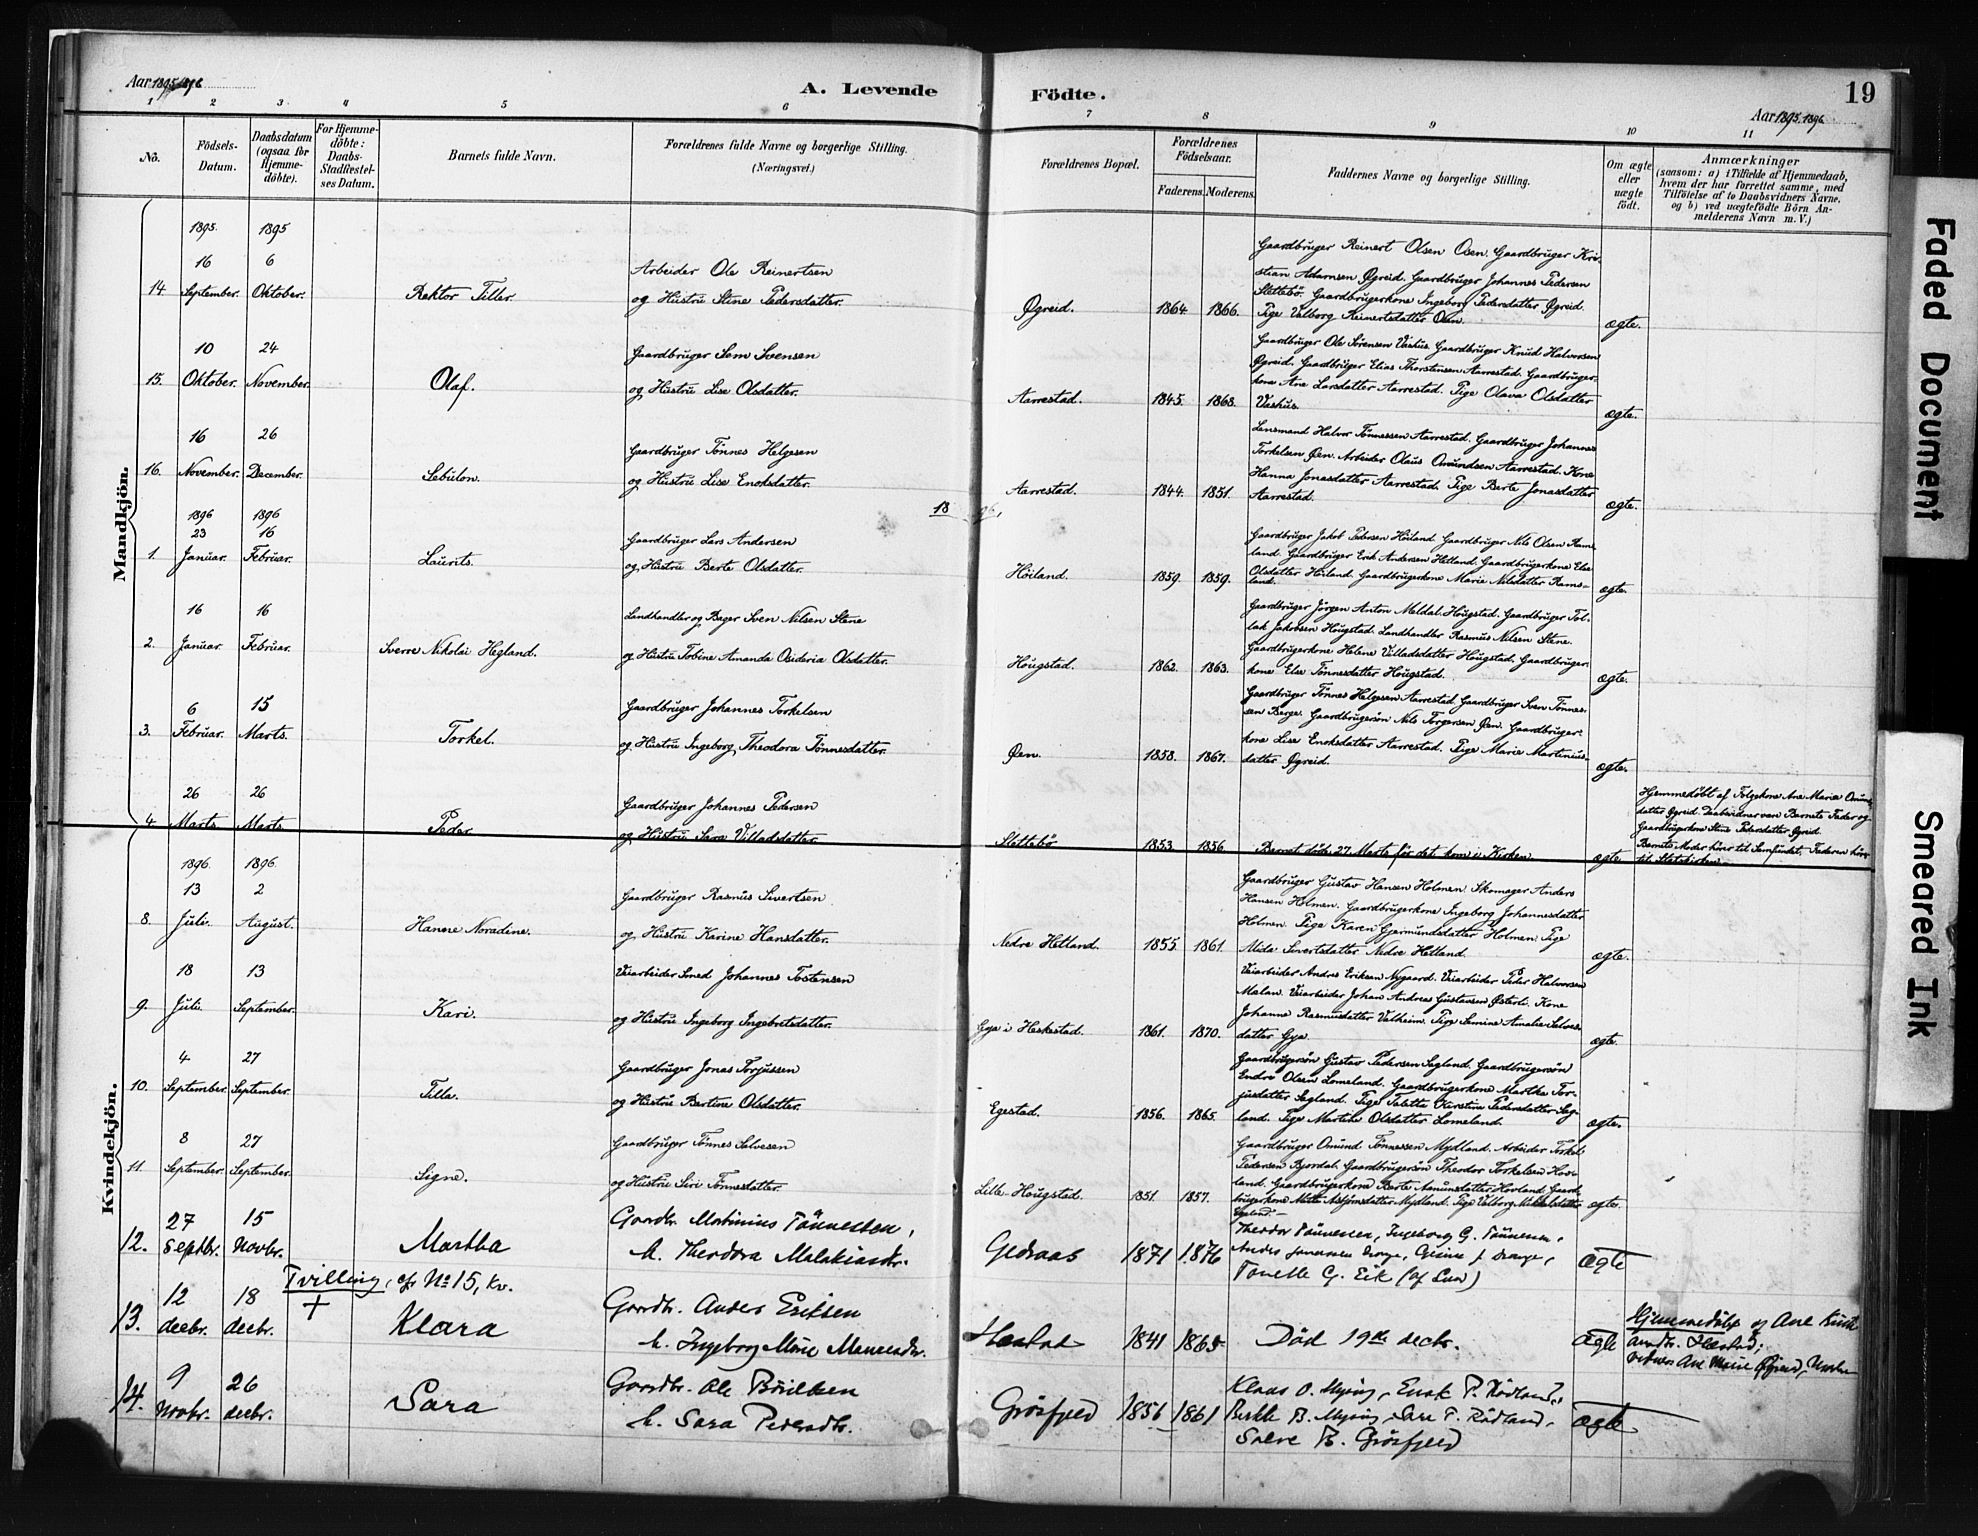 Aar 1895-1896
A. Levende Födte.
19
Aar 1895. 1896.
1 2 3 4 5 6 7 8 9 10 11
No.
Födsels-Datum.
Daabsdatum (ogsaa for Hjemme-döbte).
For Hjemme-döbte: Daabs-Stadfæstel-ses Datum.
Barnets fulde Navn.
Forældrenes fulde Navne og borgerlige Stilling.
(Næringsvei.)
Forældrenes Bopæl.
Forældrenes Födselsaar.
Faderens. Moderens.
Faddernes Navne og borgerlige Stilling.
Om ægte eller uægte födt.
Anmærkninger
(saasom: a) i Tilfælde af Hjemmedaab, hvem der har forrettet samme, med Tilföielse af to Daabsvidners Navne. og b) ved uægtefödte Börn An-melderens Navn m. V.)
Mandkjön.
1895. 1895
16 6
14. September. Oktober. Rektor Tiller.
Arbeider Ole Reinertsen
og Hustru Stine Pedersdatter.
Øgreid. 1864 1866.
Gaardbruger Reinert Olsen Osen. Gaardbruger Kri-
stian Adamsen Øgreid. Gaardbruger Johannes Pedersen
Slettebö. Gaardbrugerkone Ingeborg Pedersdatter Øgreid.
Pige Valborg Reinertsdatter Osen.
ægte.
10 24
15. Oktober. November. Olaf.
Gaardbruger Sem Svensen
og Hustru Lise Olsdatter.
Aarrestad. 1845. 1868.
Gaardbruger Ole Sörensen Vashus. Gaardbruger Knud Halvorsen
Øgreid. Gaardbruger Elias Thorsteinsen Aarrestad. Gaardbruger-
kone Ane Larsdatter Aarrestad. Pige Olava Olsdatter
Vashus.
ægte.
16 26
16. November. December. Sebulon.
Gaardbruger Tönnes Helgesen
og Hustru Lise Enoksdatter.
Aarrestad. 1844. 1851.
Lensmand Halvor Tönnessen Aarrestad. Gaardbruger Johannes
Torkelsen Øen. Arbeider Olaus Omundsen Aarrestad. Kone
Hanna Jonasdatter Aarrestad. Pige Berte Jonasdatter
Aarrestad.
ægte.
1896 1896
18 96.
23 16
1. Januar. Februar. Laurits.
Gaardbruger Lars Andersen
og Hustru Berte Olsdatter.
Höiland. 1859. 1859.
Gaardbruger Jakob Pedersen Höiland. Gaardbruger Nils Olsen Rams-
land. Gaardbruger Erik Andersen Hetland. Gaardbrugerkone Else
Olsdatter Höiland. Gaardbrugerkone Marie Nilsdatter Rams-
land.
ægte.
16 16
2. Januar. Februar. Sverre Nikolai Hegland.
Landhandler og Bager Sven Nilsen Stene
og Hustru Tobine Amanda Osideria Olsdatter.
Hougstad. 1862. 1863.
Gaardbruger Jörgen Anton Meldal. Hougstad. Gaardbruger Tol-
lak Jakobsen Hougstad. Landhandler Rasmus Nilsen Stene.
Gaardbrugerkone Helene Villadsdatter Hougstad. Gaardbruger-
kone Else Tönnesdatter Hougstad.
ægte.
6 15
3. Februar. Marts. Torkel.
Gaardbruger Johannes Torkelsen
og Hustru Ingeborg Theodora Tönnesdatter.
Øen. 1858. 1867.
Gaardbruger Tönnes Helgesen Aarrestad. Gaardbruger Sven Tönnes-
sen Berge. Gaardbrugersön Nils Torgersen Øen. Gaardbruger-
kone Lise Enoksdatter Aarrestad. Pige Marie Martinius-
datter Øgreid.
ægte.
26 26
4. Marts. Marts. Peder
Gaardbruger Johannes Pedersen
og Hustru Sara Villadsdatter.
Slettebö 1853. 1856.
Barnet döde 27. Marts för det kom i Kirken.
ægte.
Hjemmedöbt af Folgekone Ane Marie Omunds-
datter Øgreid. Daabsvidner var Barnets Fader og
Gaardbrugerkone Stine Pedersdatter Øgreid.
Barnets Moder hörer til Samfundet. Faderen hörer
til Statskirken.
Kvindekjön.
1896. 1896.
13 2
8. Juli. August. Hanne Noradine.
Gaardbruger Rasmus Sivertsen
og Hustru Karine Hansdatter.
Nedre Hetland. 1855 1861
Gaardbruger Gustav Hansen Holmen. Skomager Anders
Hansen Holmen. Gaardbrugerkone Ingeborg Johannesdatter
Holmen. Pige Karen Gjermundsdatter Holmen. Pige
Mida Sivertsdatter Nedre Hetland.
ægte.
18 13
9. Juli. September. Kari.
Veiarbeider Smed Johannes Tostensen
og Hustru Ingeborg Ingebretsdatter.
Gya i Heskestad. 1861. 1870.
Veiarbeider Andres Eriksen Nygaard. Veiarbeider Peder Halvorsen
Melaw. Veiarbeider Johan Andreas Gustavsen Østerli. Kone
Johanne Rasmusdatter Valheim. Pige Semine Amalie Salves-
datter Gya.
ægte.
4 27
10. September. September. Tilla.
Gaardbruger Jonas Torjussen
og Hustru Bertine Olsdatter.
Egestad. 1856. 1865.
Gaardbrugersön Gustav Pedersen Segland. Gaardbrugersön
Endre Olsen Lomeland. Gaardbrugerkone Martha Tor-
jusdatter Segland. Pige Taletta Kirstine Pedersdatter Seg-
land. Pige Marthe Olsdatter Lomeland.
ægte.
8 27
11. September. September. Signe.
Gaardbruger Tönnes Salvesen
og Hustru Siri Tönnesdatter.
Lille-Hougstad. 1851. 1857.
Gaardbruger Omund Tönnessen Mydland. Arbeider Torkel
Pedersen Bjordal. Gaardbrugersön Theodor Torkelsen Hov-
land. Gaardbrugerkone Berte Aamundsdatter Hovland. Gaard-
brugerkone Mille Asbjörnsdatter Mydland. Pige Valborg
ægte.
27 15
12. Septbr. Novbr. Martha
Gaardbr. Martinius Tönnessen,
h. Theodora Malakiasdr.
Gedraas 1871 1876
Theodor Tönnesen, Ingeborg G. Tönnesen,
Tonette G. Eik (af Lund)
Ægte
Tvilling, cfr No 15, Kv.
12 18
13. decbr. decbr. + Klara
Gaardbr. Anders Eriksen
h. Ingeborg Marie
Hæstad 1841 1865
Död 19de decbr.
Ægte
Hjemmedöbt af Ane
Hæstad;
Ane Marie Øgreid,
9 26
14. Novbr. decbr. Sara
Gaardbr. Ole Börilsen
h. Sara Pedersdtr.
Grösfjeld 1856 1861
Klaas O. Mysing, Enok P. Rödland,
Berthe B. Mysing, Sara P. Rödland,
Salve B. Grösfjeld
Ægte
Faded Document
Smeared Ink